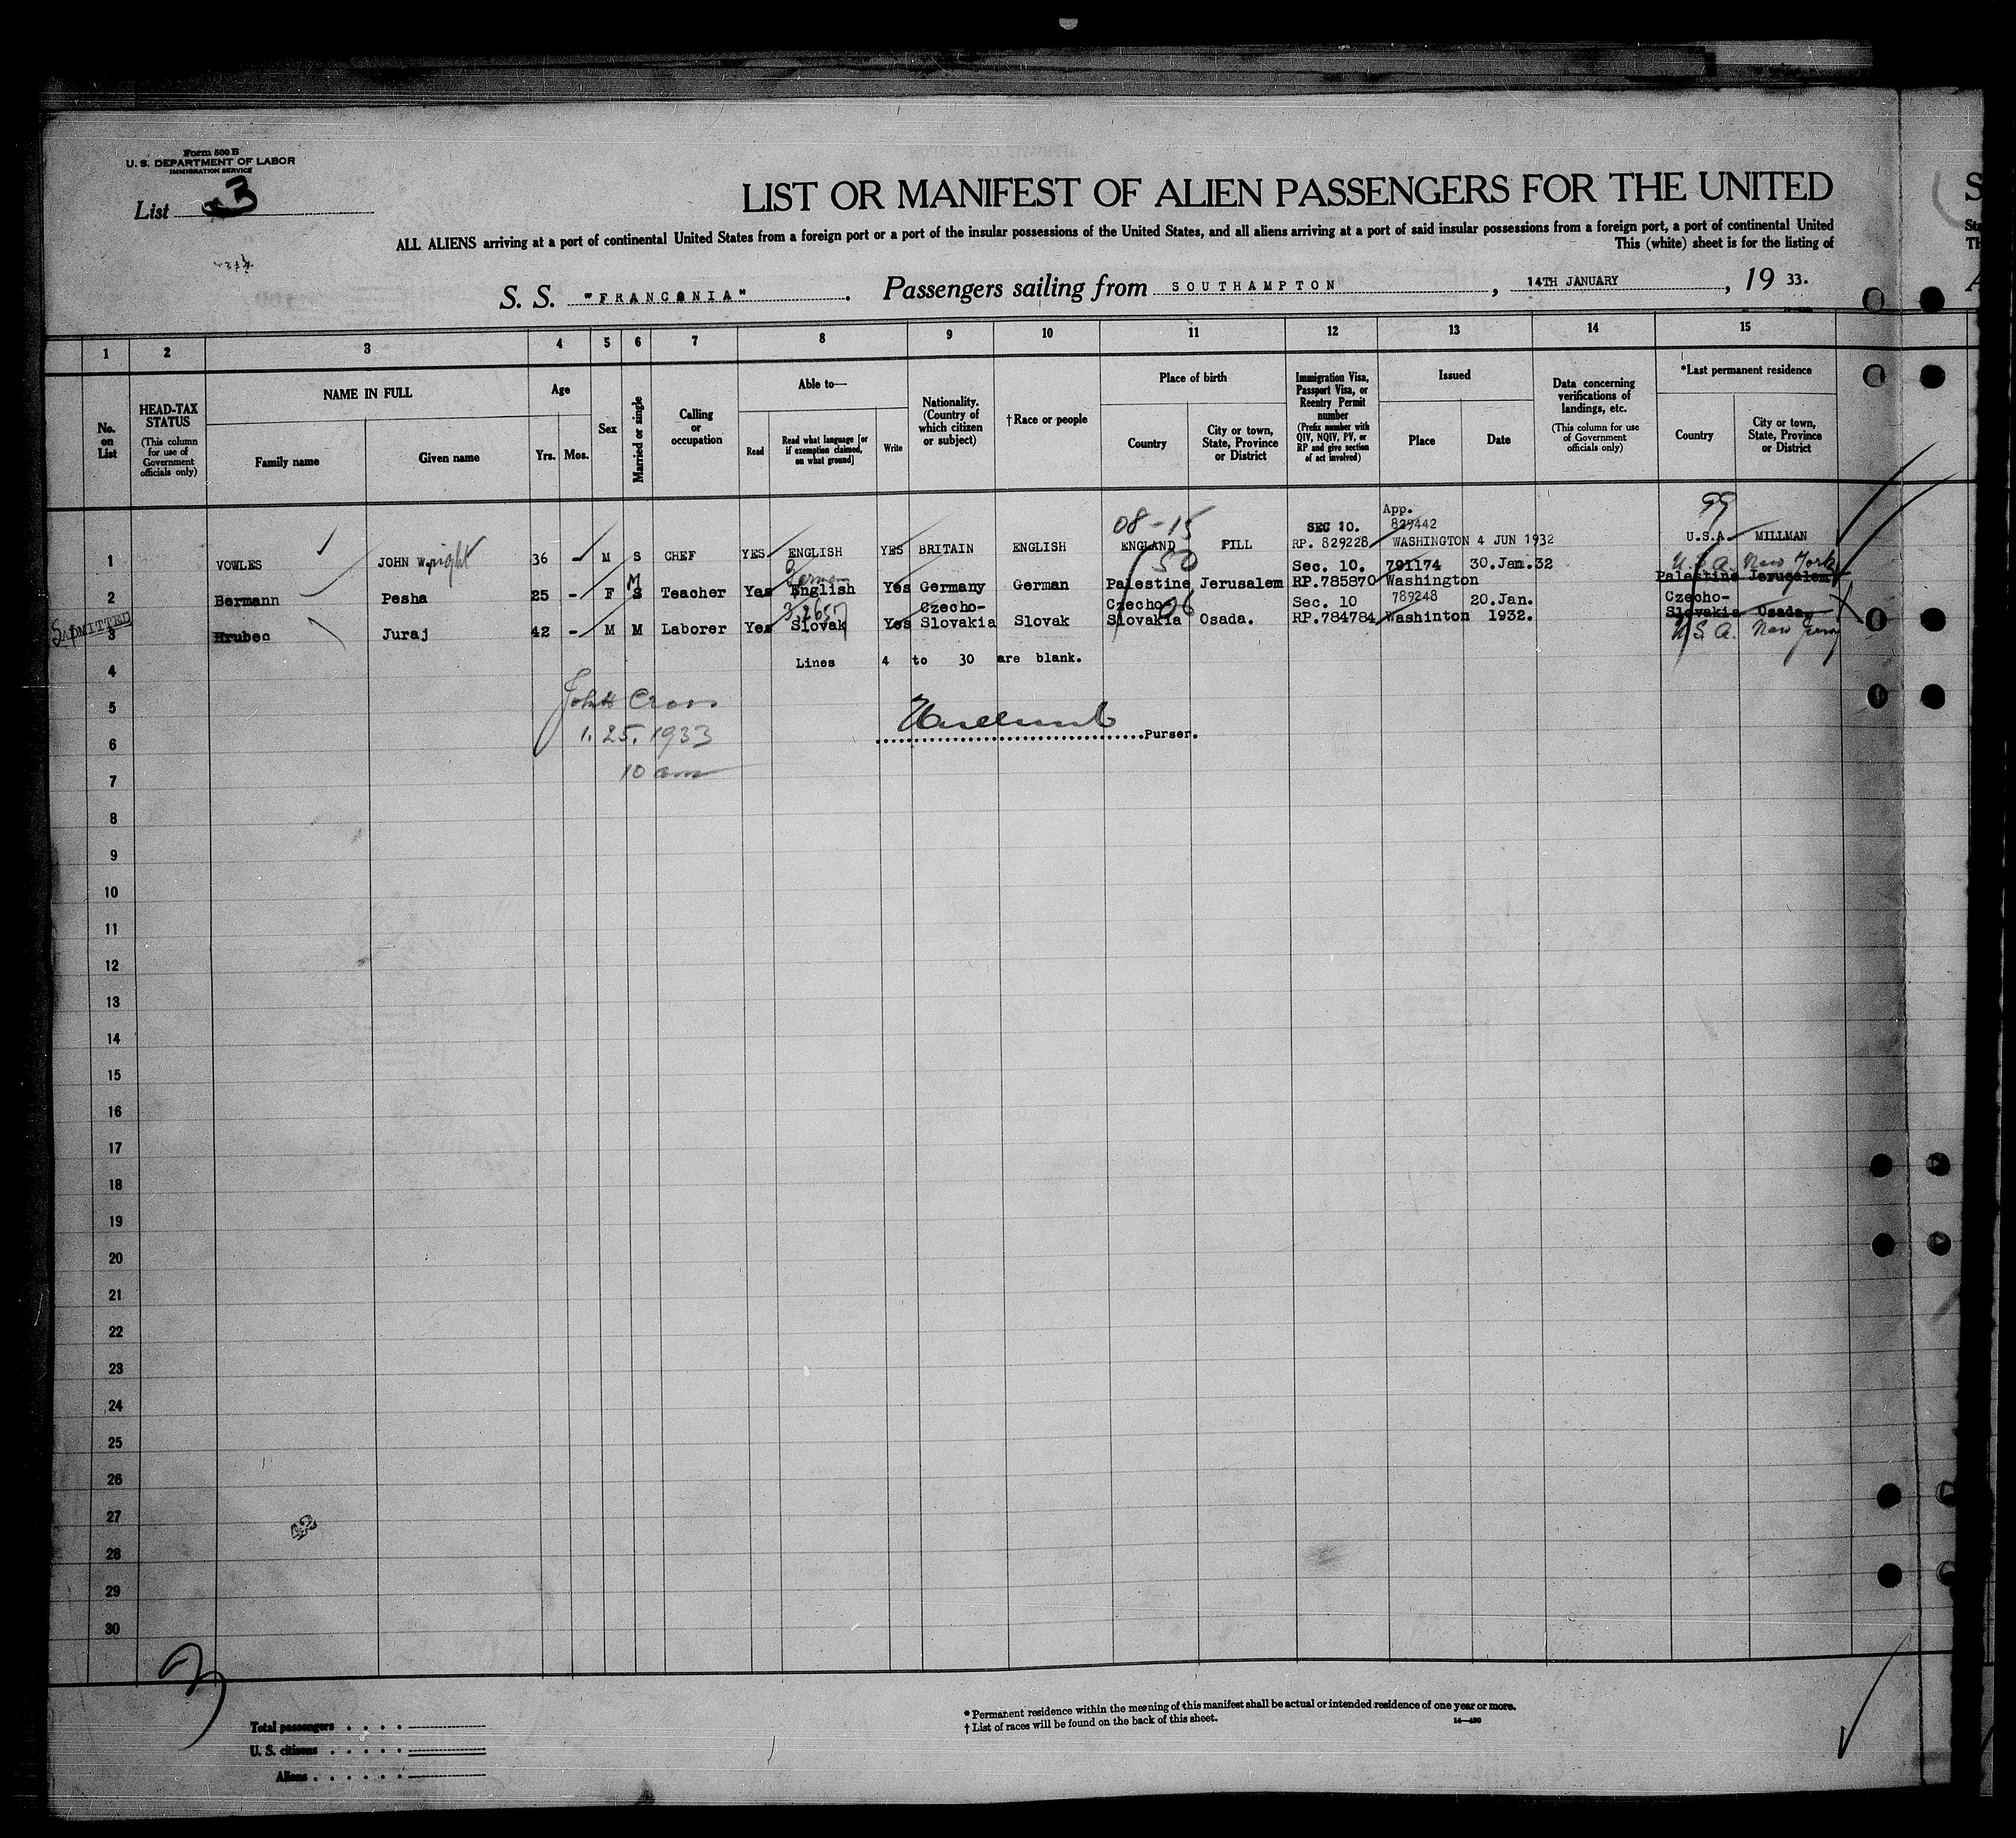 Form 500 B
U. S. DEPARTMENT OF LABOR
IMMIGRATION SERVICE
List 3
LIST OR MANIFEST OF ALIEN PASSENGERS FOR THE UNITED
ALL ALIENS arriving at a port of continental United States from a foreign port or a port of the insular possessions of the United States, and all aliens arriving at a port of said insular possessions from a foreign port, a port of continental United
This (white) sheet is for the listing of
S. S. "FRANCONIA". Passengers sailing from SOUTHAMPTON, 14TH JANUARY, 19 33.
1 2 3 4 5 6 7 8 9 10 11 12 13 14 15
No. on List
HEAD-TAX STATUS
(This column for use of Government officials only)
NAME IN FULL
Family name
Given name
Age
Yrs. Mos.
Sex
Married or single
Calling or occupation
Able to—
Read
Read what language [or if exemption claimed, on what ground]
Write
Nationality. (Country of which citizen or subject)
† Race or people
Place of birth
Country
City or town, State, Province or District
Immigration Visa, Passport Visa, or Reentry Permit number
(Prefix number with QIV, NQIV, PV, or RP and give section of act involved)
Issued
Place
Date
Data concerning verifications of landings, etc.
(This column for use of Government officials only)
*Last permanent residence
Country
City or town, State, Province or District
08-15 SEC 10. App. 829442 99
1 VOWLES JOHN Wright 36 - M S CHEF YES ENGLISH YES BRITAIN ENGLISH ENGLAND PILL RP. 829228 WASHINGTON 4 JUN 1932 U.S.A. MILLMAN
German 50 Sec. 10. 791174 30.Jan.32 U.S.A. New York
2 Bermann Pesha 25 - F M S Teacher Yes English Yes Germany German Palestine Jerusalem RP.785870 Washington Palestine Jerusalem
Czecho- Czecho- 06 Sec. 10 789248 20.Jan. Czecho-
ADMITTED
3 Hrubec Juraj 42 - M M Laborer Yes Slovak Yes Slovakia Slovak Slovakia Osada. RP.784784 Washinton 1932. Slovakia Osada.
U.S.A. New Jersey
4 Lines 4 to 30 are blank.
5 John Cross
6 1.25.1933 Purser.
7 10 am
8
9
10
11
12
13
14
15
16
17
18
19
20
21
22
23
24
25
26
27
42
28
29
30
Total passengers
U. S. citizens
Aliens
* Permanent residence within the meening of this manifest shall be actual or intended residence of one year or more.
† List of races will be found on the back of this sheet.
14—430